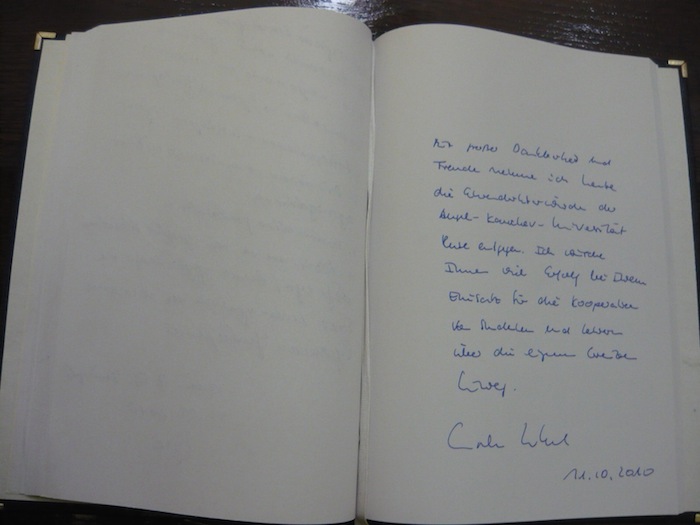 Mit großer Dankbarkeit und
Freude nehme ich heute
die Ehrendoktorwürde der
Angel-Kanchev-Universität
Ruse entgegen. Ich wünsche
Ihnen viel Erfolg bei Ihrem
Einsatz für die Kooperation
von Studenten und Lehrern
über die eigenen Grenzen
hinweg.
11.10.2010